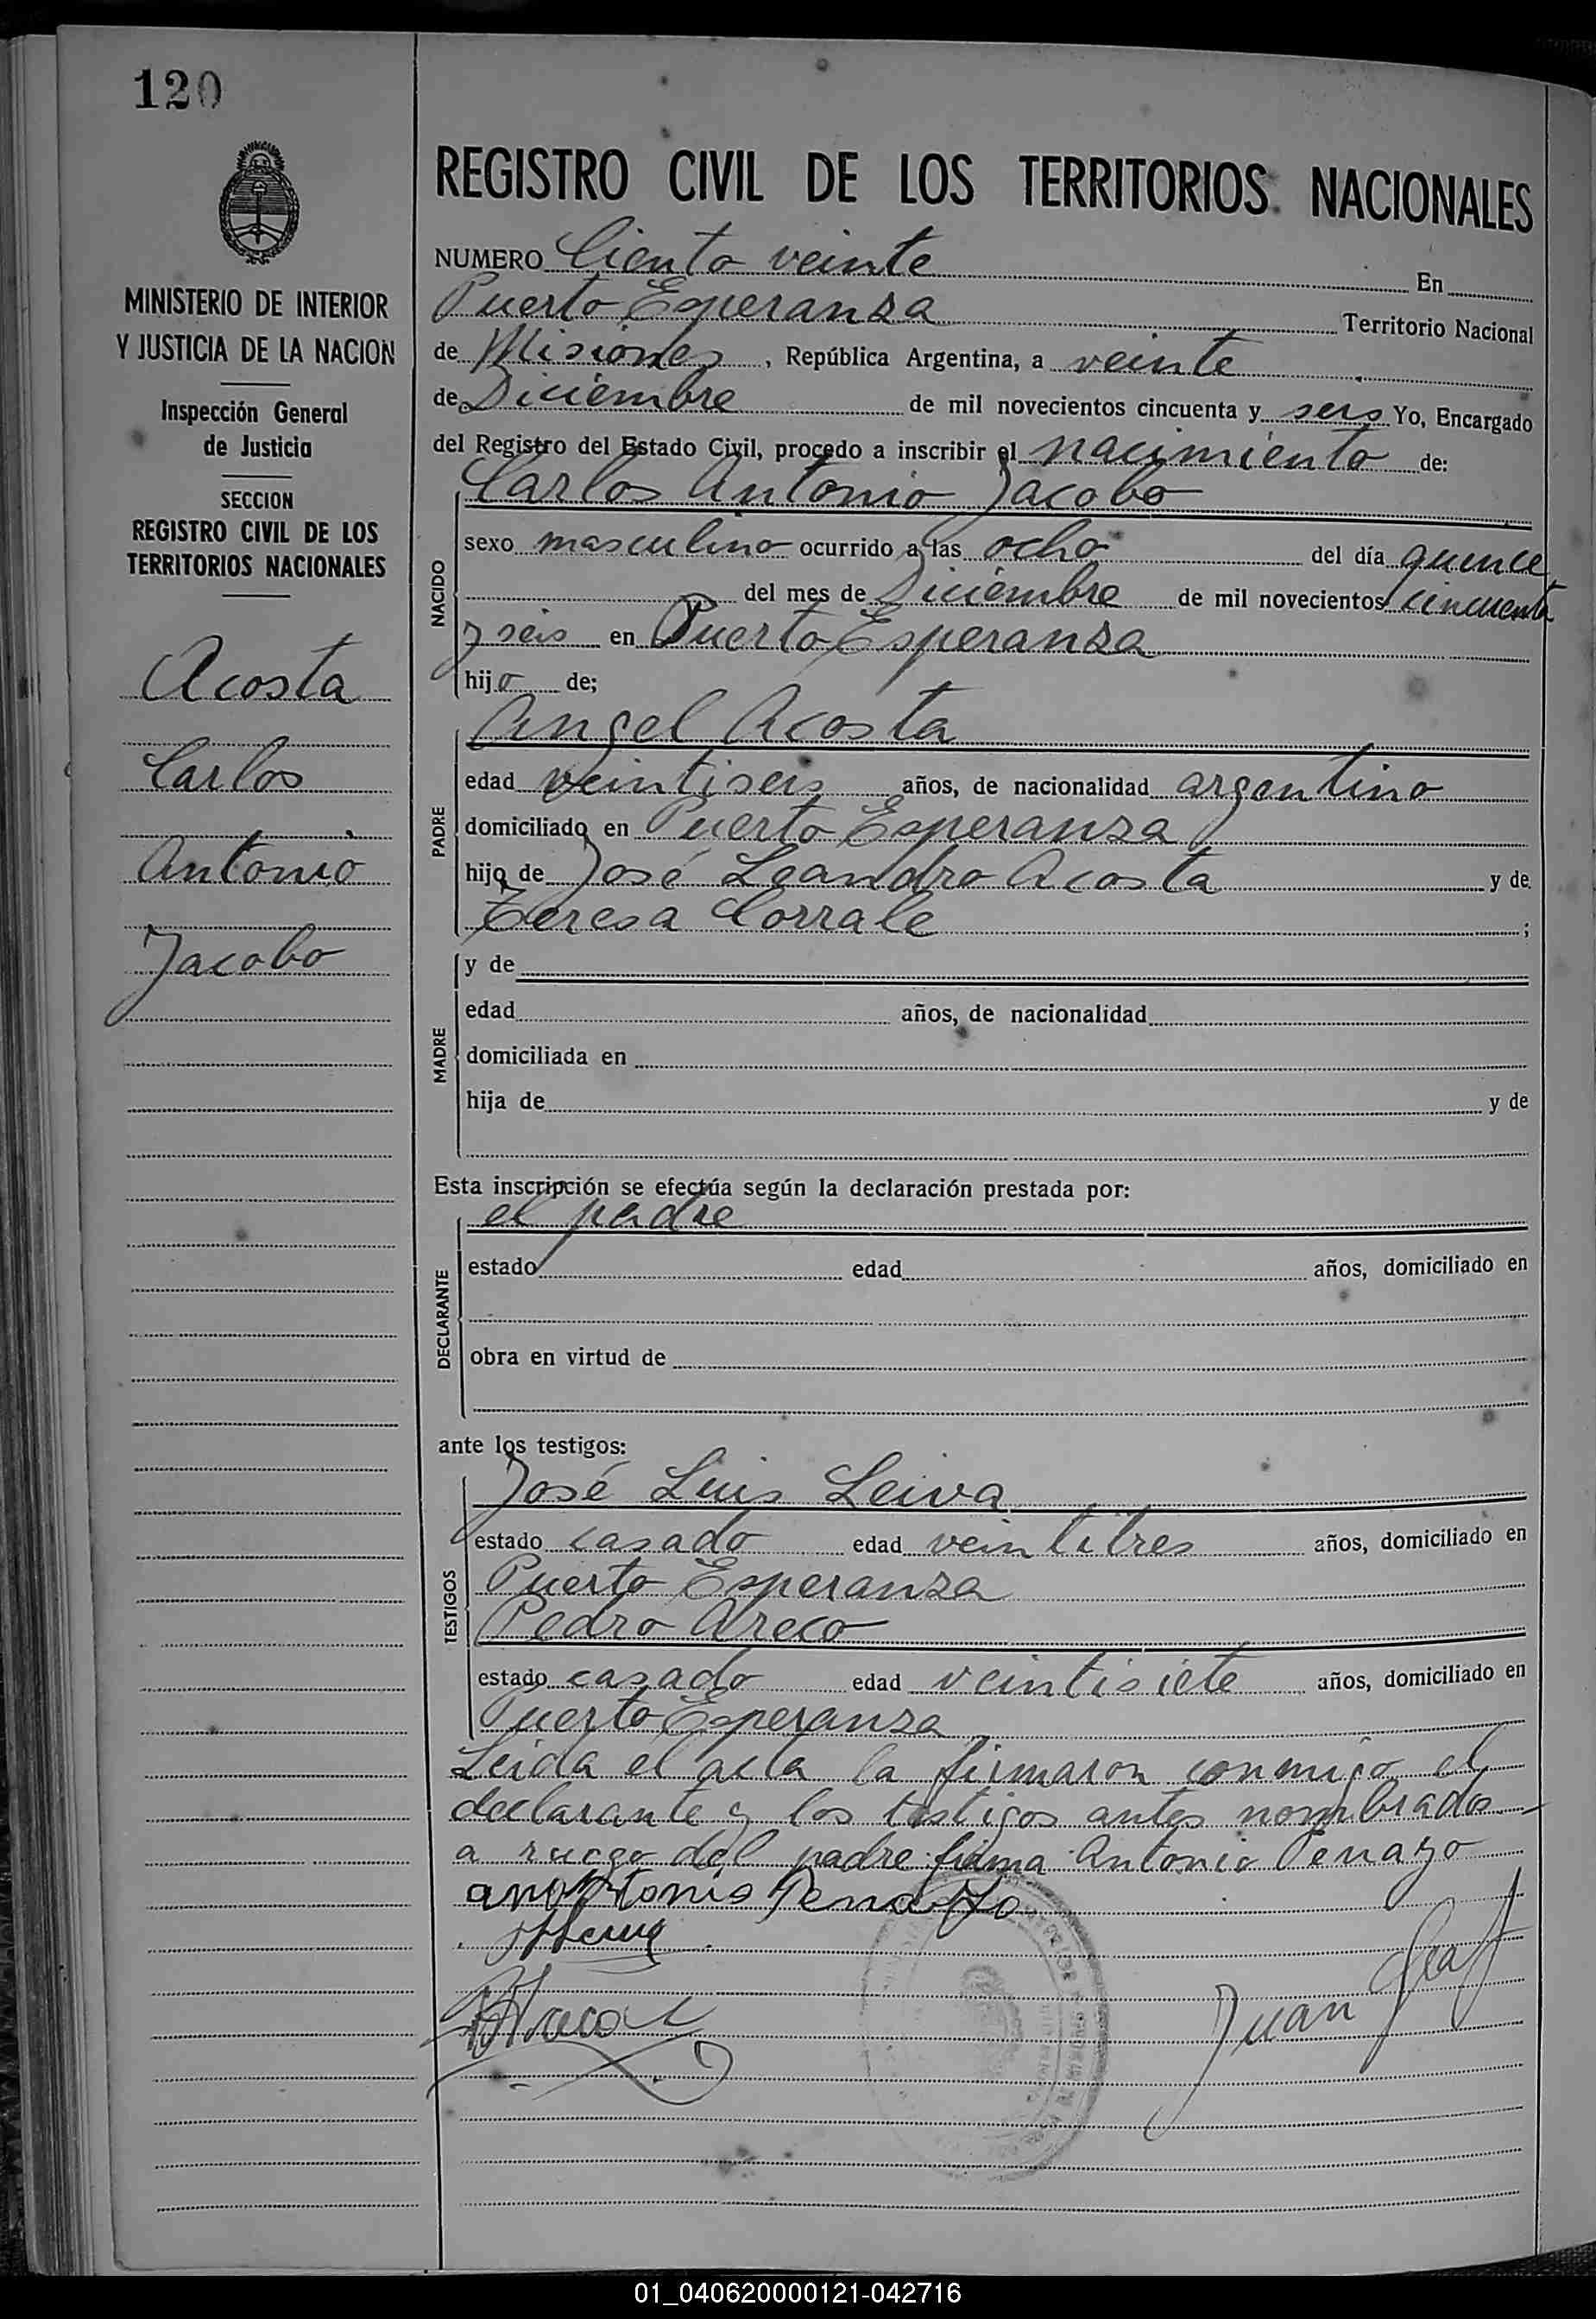 120
MINISTERIO DE INTERIOR
Y JUSTICIA DE LA NACION
Inspección General
de Justicia
SECCION
REGISTRO CIVIL DE LOS
TERRITORIOS NACIONALES
Acosta
Carlos
Antonio
Jacobo
REGISTRO CIVIL DE LOS TERRITORIOS NACIONALES
NUMERO Ciento veinte En
Puerto Esperanza Territorio Nacional
de Misiones, República Argentina, a veinte
de Diciembre de mil novecientos cincuenta y seis Yo, Encargado
del Registro del Estado Civil, procedo a inscribir el nacimiento de:
Carlos Antonio Jacobo
NACIDO
sexo masculino ocurrido a las ocho del día quince
del mes de Diciembre de mil novecientos cincuenta
y seis en Puerto Esperanza
hijo de;
Angel Acosta
PADRE
edad veintiseis años, de nacionalidad argentino
domiciliado en Puerto Esperanza
hijo de José Leandro Acosta y de
Teresa Corrale ;
MADRE
y de
edad años, de nacionalidad
domiciliada en
hija de y de
Esta inscripción se efectúa según la declaración prestada por:
el padre
DECLARANTE
estado edad años, domiciliado en
obra en virtud de
ante los testigos:
José Luis Leiva
TESTIGOS
estado casado edad veintitres años, domiciliado en
Puerto Esperanza
Pedro Areco
estado casado edad veintisiete años, domiciliado en
Puerto Esperanza
Leida el acta la firmaron conmigo el
declarante y los testigos antes nombrados
a ruego del padre firma Antonio Penayo
Penayo
Juan
01_040620000121-042716